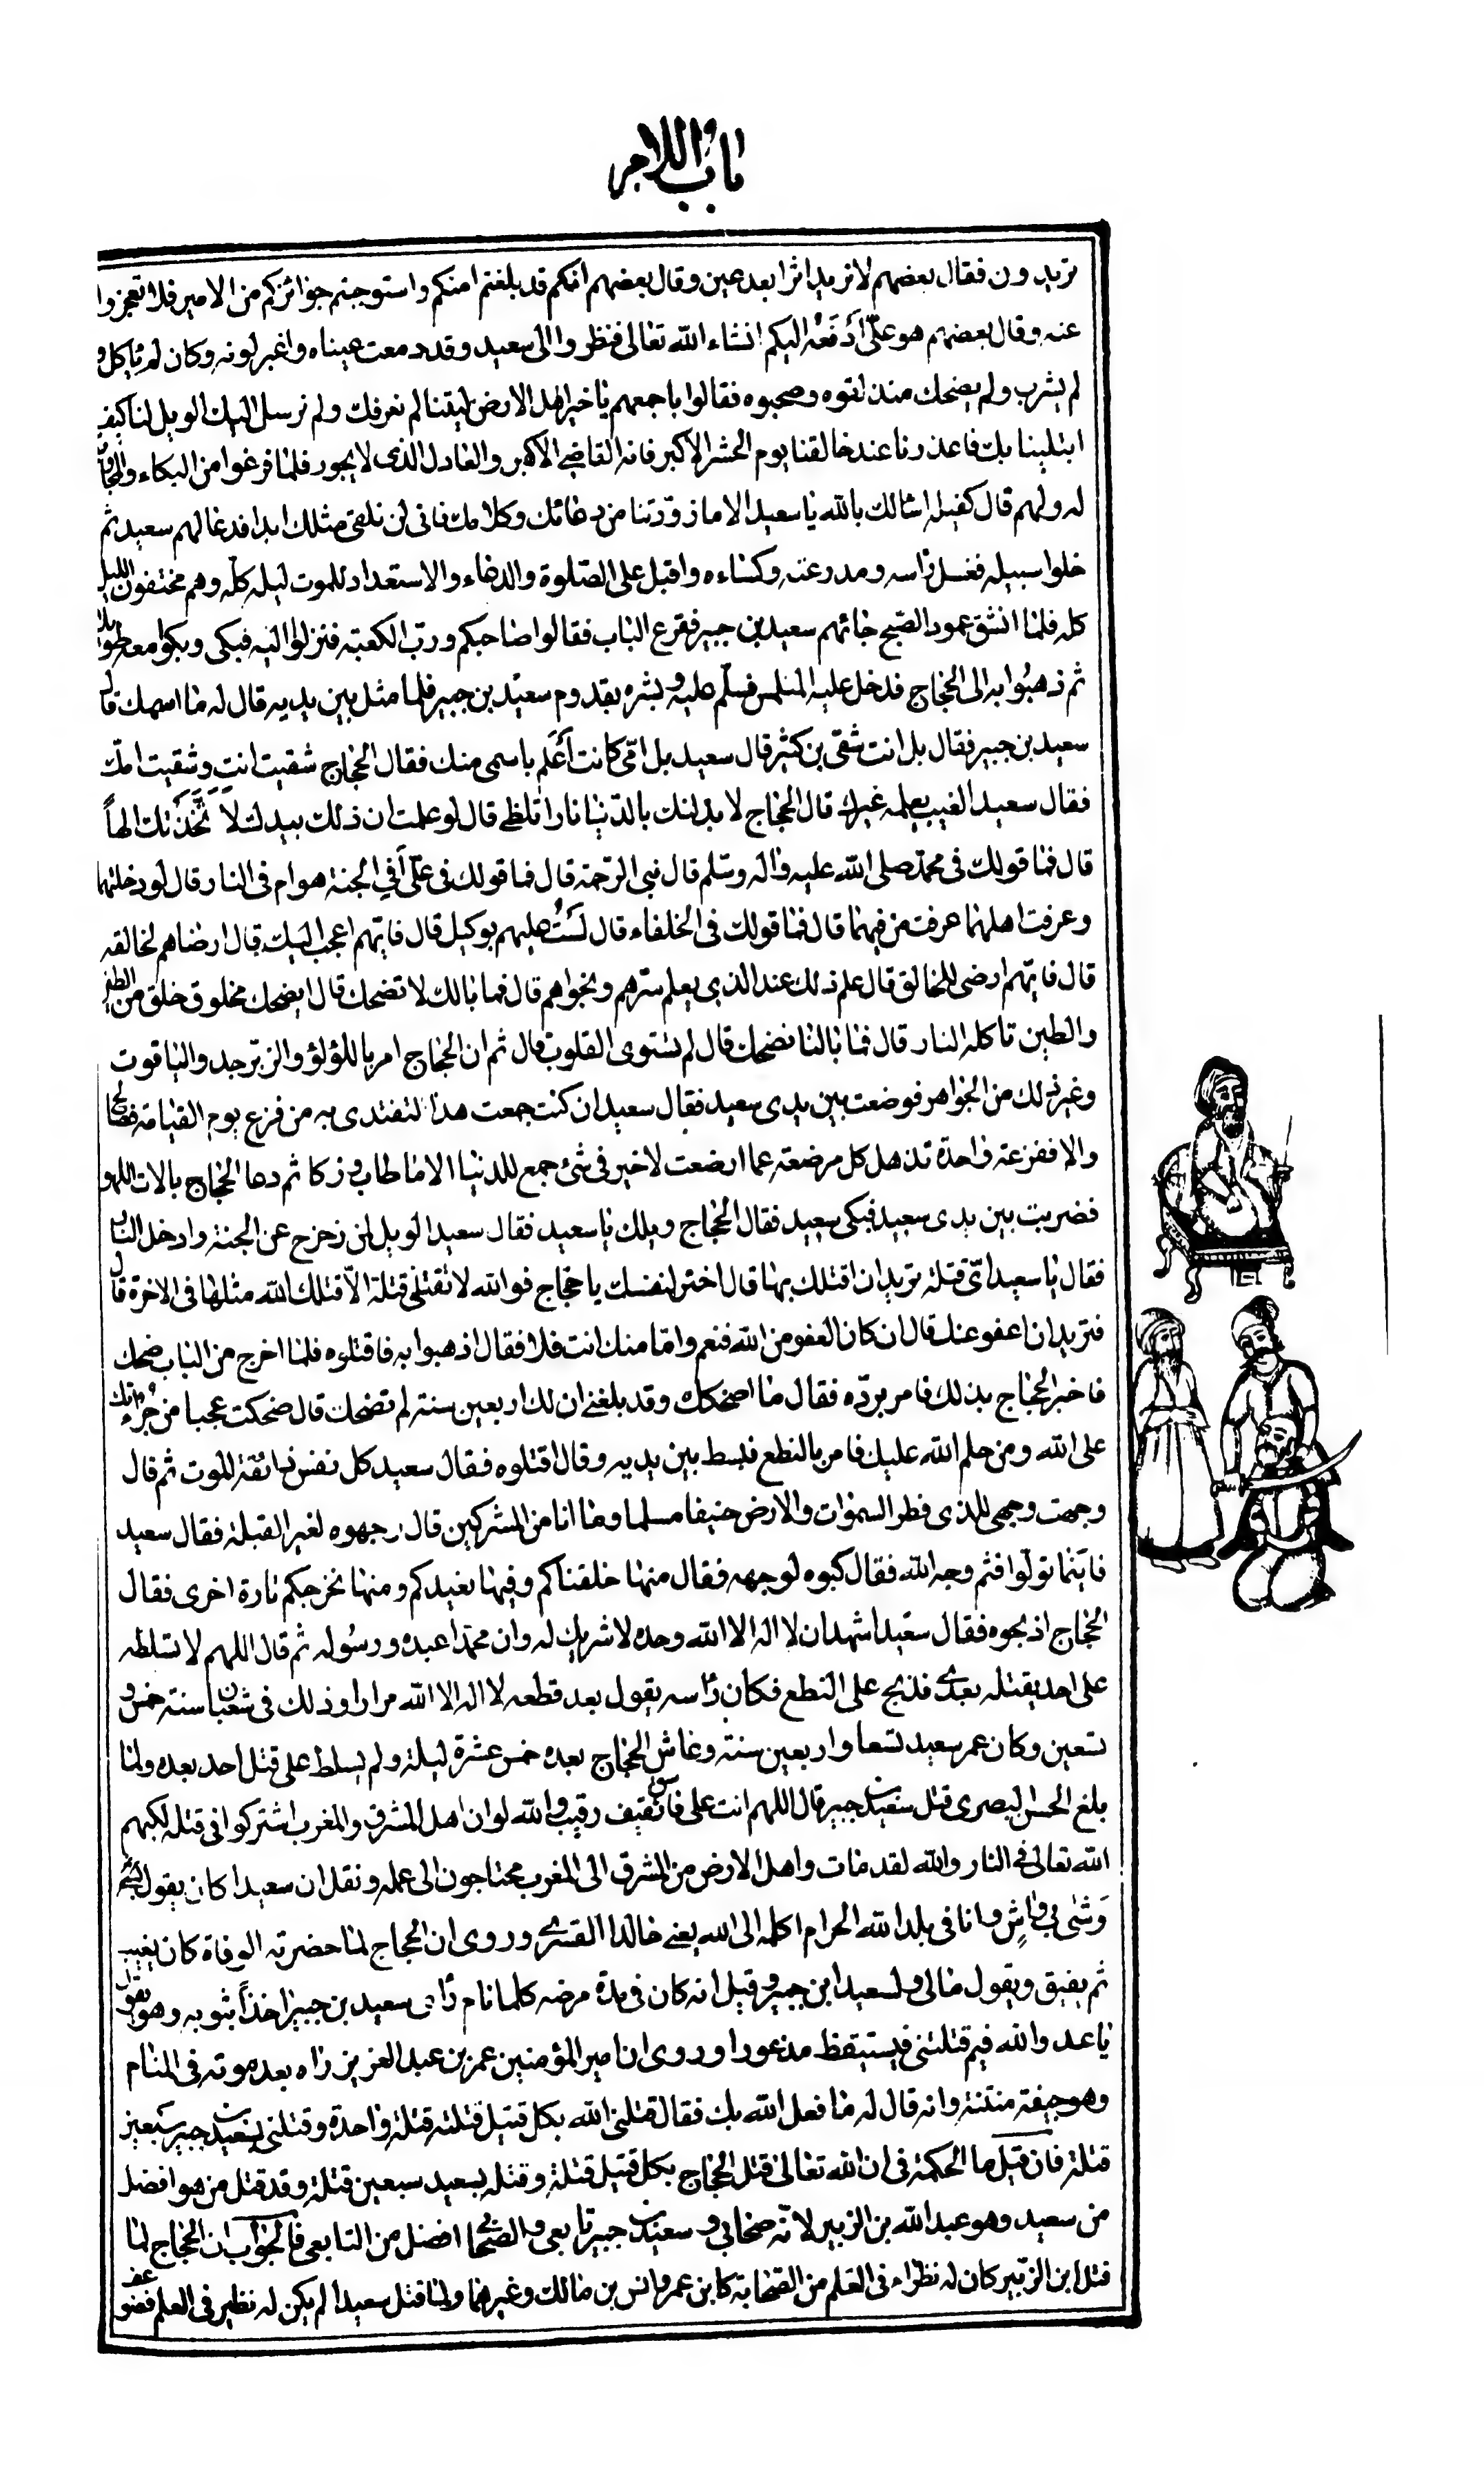 باب اللام
تريدون فقال بعضهم لا نريد اثرا بعد عين وقال بعضهم انكم قد بلغتم امنكم واستوجبتم جوائزكم من الامير فلا تعجزوا
عنه وقال بعضهم هو علىّ اَدْفَعُه اليكم انشاء الله تعالى فنظروا الى سعيد وقد دمعت عيناه واغبر لونه وكان لم ياكل و
لم يشرب ولم يضحك منذ لقوه وصحبوه فقالوا باجمعهم يا خير اهل الارض ليتنا لم نعرفك ولم نرسل اليك الويل لنا كيف
ابتلينا بك فاعذرنا عند خالقنا يوم الحشر الاكبر فانه القاضى الاكبر والعادل الذى لا يجور فلما فرغوا من البكاء والمجاوبة
له ولهم قال كفيله اسالك بالله يا سعيد الا ما زودتنا من دعائك وكلامك فانى لن نلقى مثلك ابدا فدعا لهم سعيد ثم
خلوا سبيله فغسل راسه ومدرعته وكساءه واقبل على الصلوة والدعاء والاستعداد للموت ليله كلّه وهم مختفون الليل
كله فلما انشق عمود الصبح جائهم سعيد بن جبير فقرع الباب فقالوا صاحبكم وربّ الكعبة فنزلوا اليه فبكى وبكوا معه طويلا
ثم ذهبوا به الى الحجاج فدخل عليه المتلمس فسلّم عليه وبشره بقدوم سعيد بن جبير فلما مثل بين يديه قال له ما اسمك قال
سعيد بن جبير فقال بل انت شقى بن كثير قال سعيد بل امّى كانت اَعْلَم باسمى منك فقال الحجاج شقيت انت وشقيت امّك
فقال سعيد الغيب يعلمه غيرك قال الحجاج لا بدلنك بالدّنيا نارا تلظى قال لو علمت ان ذلك بيدك لا تّخَذْتك الهاً
قال فما قولك فى محمد صلى الله عليه واله وسلم قال نبى الرّحمة قال فما قولك فى علىّ اَفي الجنة هو ام فى النار قال لو دخلتها
وعرفت اهلها عرفت من فيها قال فما قولك فى الخلفاء قال لَسْتُ عليهم بوكيل قال فايّهم اعجب اليك قال ارضاهم لخالقه
قال فايّهم ارضى للخالق قال علم ذلك عند الذى يعلم سرّهم ونجواهم قال فما بالك لا تضحك قال ايضحك مخلوق خلق من الطين
والطين تاكله النار قال فما بالنا نضحك قال لم تستوى القلوب قال ثم ان الحجاج امر باللؤلؤ والزبرجد والياقوت
وغير ذلك من الجواهر فوضعت بين يدى سعيد فقال سعيد ان كنت جمعت هذا لتفتدى به من فزع يوم القيامة فصالح
والا ففزعة واحدة تذهل كل مرضعة عما ارضعت لا خير فى شئ جمع للدنيا الا ما طاب وزكا ثم دعا الحجاج بالات اللهو
فضربت بين يدى سعيد فبكى سعيد فقال الحجاج ويلك يا سعيد فقال سعيد الويل لمن زحزح عن الجنة وادخل النار
فقال يا سعيد اىّ قتلة تريد ان اقتلك بها قال اختر لنفسك يا حجاج فوالله لا تقتلنى قتلة الّا قتلك الله مثلها فى الاخرة قال
فتريد ان اعفو عنك قال ان كان العفو من الله فنعم واما منك انت فلا فقال اذهبوا به فاقتلوه فلما اخرج من الباب ضحك
فاخبر الحجاج بذلك فامر بردّه فقال ما اضحكك وقد بلغنى ان لك اربعين سنة لم تضحك قال ضحكت عجبا من جُرْءتك
على الله ومن حلم الله عليك فامر بالنطع فبسط بين يديه وقال اقتلوه فقال سعيد كل نفس ذائقة الموت ثم قال
وجهت وجهى للذى فطر السموات والارض حنيفا مسلما وما انا من المشركين قال وجهوه لغير القبلة فقال سعيد
فاينما تولّوا فثم وجه الله فقال كبوه لوجهه فقال منها خلقناكم وفيها نعيدكم ومنها نخرجكم تارة اخرى فقال
الحجاج اذبحوه فقال سعيد اشهد ان لا اله الا الله وحده لا شريك له وان محمدا عبده ورسوله ثم قال اللهم لا تسلطه
على احد يقتله بعدى فذبح على النطع فكان راسه يقول بعد قطعه لا اله الا الله مرارا وذلك فى شعبان سنة خمس و
تسعين وكان عمر سعيد تسعا واربعين سنة وعاش الحجاج بعده خمس عشرة ليلة ولم يسلط على قتل احد بعده ولما
بلغ الحسن البصرى قتل سعيد بن جبير قال اللهم انت على فاسق ثقيف رقيب والله لو ان اهل المشرق والمغرب اشتركوا فى قتله لكبهم
الله تعالى فى النار والله لقد مات واهل الارض من المشرق الى المغرب محتاجون الى عمله ونقل ان سعيدا كان يقول
وَشى بى واشٍ وانا فى بلد الله الحرام اكله الى الله يعنى خالدا القسرى وروى ان الحجاج لما حضرته الوفاة كان يغيب
ثم يفيق ويقول مالى ولسعيد ابن جبير وقيل انه كان فى مدة مرضه كلما نام راى سعيد بن جبير اخذاً بثوبه وهو يقول
يا عدو الله فيم قتلتنى فيستيقظ مذعورا وروى ان امير المؤمنين عمر بن عبد العزيز راه بعد موته فى المنام
وهو جيفة منتنة وانه قال له ما فعل الله بك فقال قتلنى الله بكل قتيل قتلته قتلة واحدة وقتلنى بسعيد بن جبير سبعين
قتلة فان قيل ما الحكمة فى ان الله تعالى قتل الحجاج بكل قتيل قتلة وقتله بسعيد سبعين قتلة وقد قتل من هو افضل
من سعيد وهو عبد الله بن الزبير لانّه صحابى وسعيد بن جبير تابعى والصحابى افضل من التابعى فالجواب ان الحجاج لما
قتل ابن الزّبير كان له نظراء فى العلم من الصّحابة كابن عمر وانس بن مالك وغيرهما ولما قتل سعيدا لم يكن له نظير فى العلم